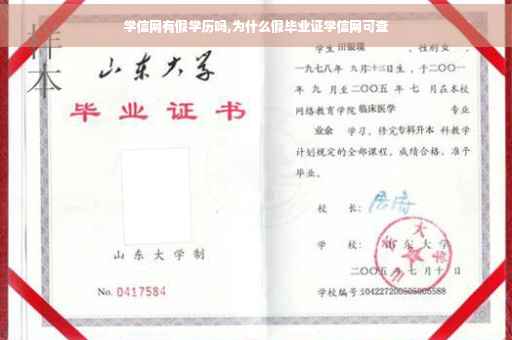 学信网有假学历吗,为什么假毕业证学信网可查
样本
山东大学
毕业证书
山东大学制
No. 0417584
学生 田银瑞 ，性别 女 ，
一九七八年 九月十三日生，于二〇〇一
年 九 月至二〇〇五 年 七 月在本校
网络教育学院 临床医学 专业
业余 学习，修完 专科升本 科教学
计划规定的全部课程，成绩合格，准予
毕业。
校 长：
学 校： 山东大学
二〇〇五年七月十日
学校编号:104227200505005588